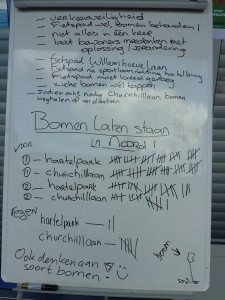 verkeersveiligheid
Fietspad wel, Bomen behouden!
niet alles in één keer
laat bewoners meedenken met
oplossing / verandering
Fietspad Willemshoeve laan
Fietspad
Fietspad moet
zieke bomen wel kappen
Indien echt nodig Churchilllaan bomen
weghalen of verplaatsen
Bomen Laten staan
in Noord!
voor
① – hartelpark
① – churchilllaan
② – hartelpark
② – churchilllaan
Tegen
hartelpark — ||
churchilllaan —
Ook denken aan
soort bomen!
boom